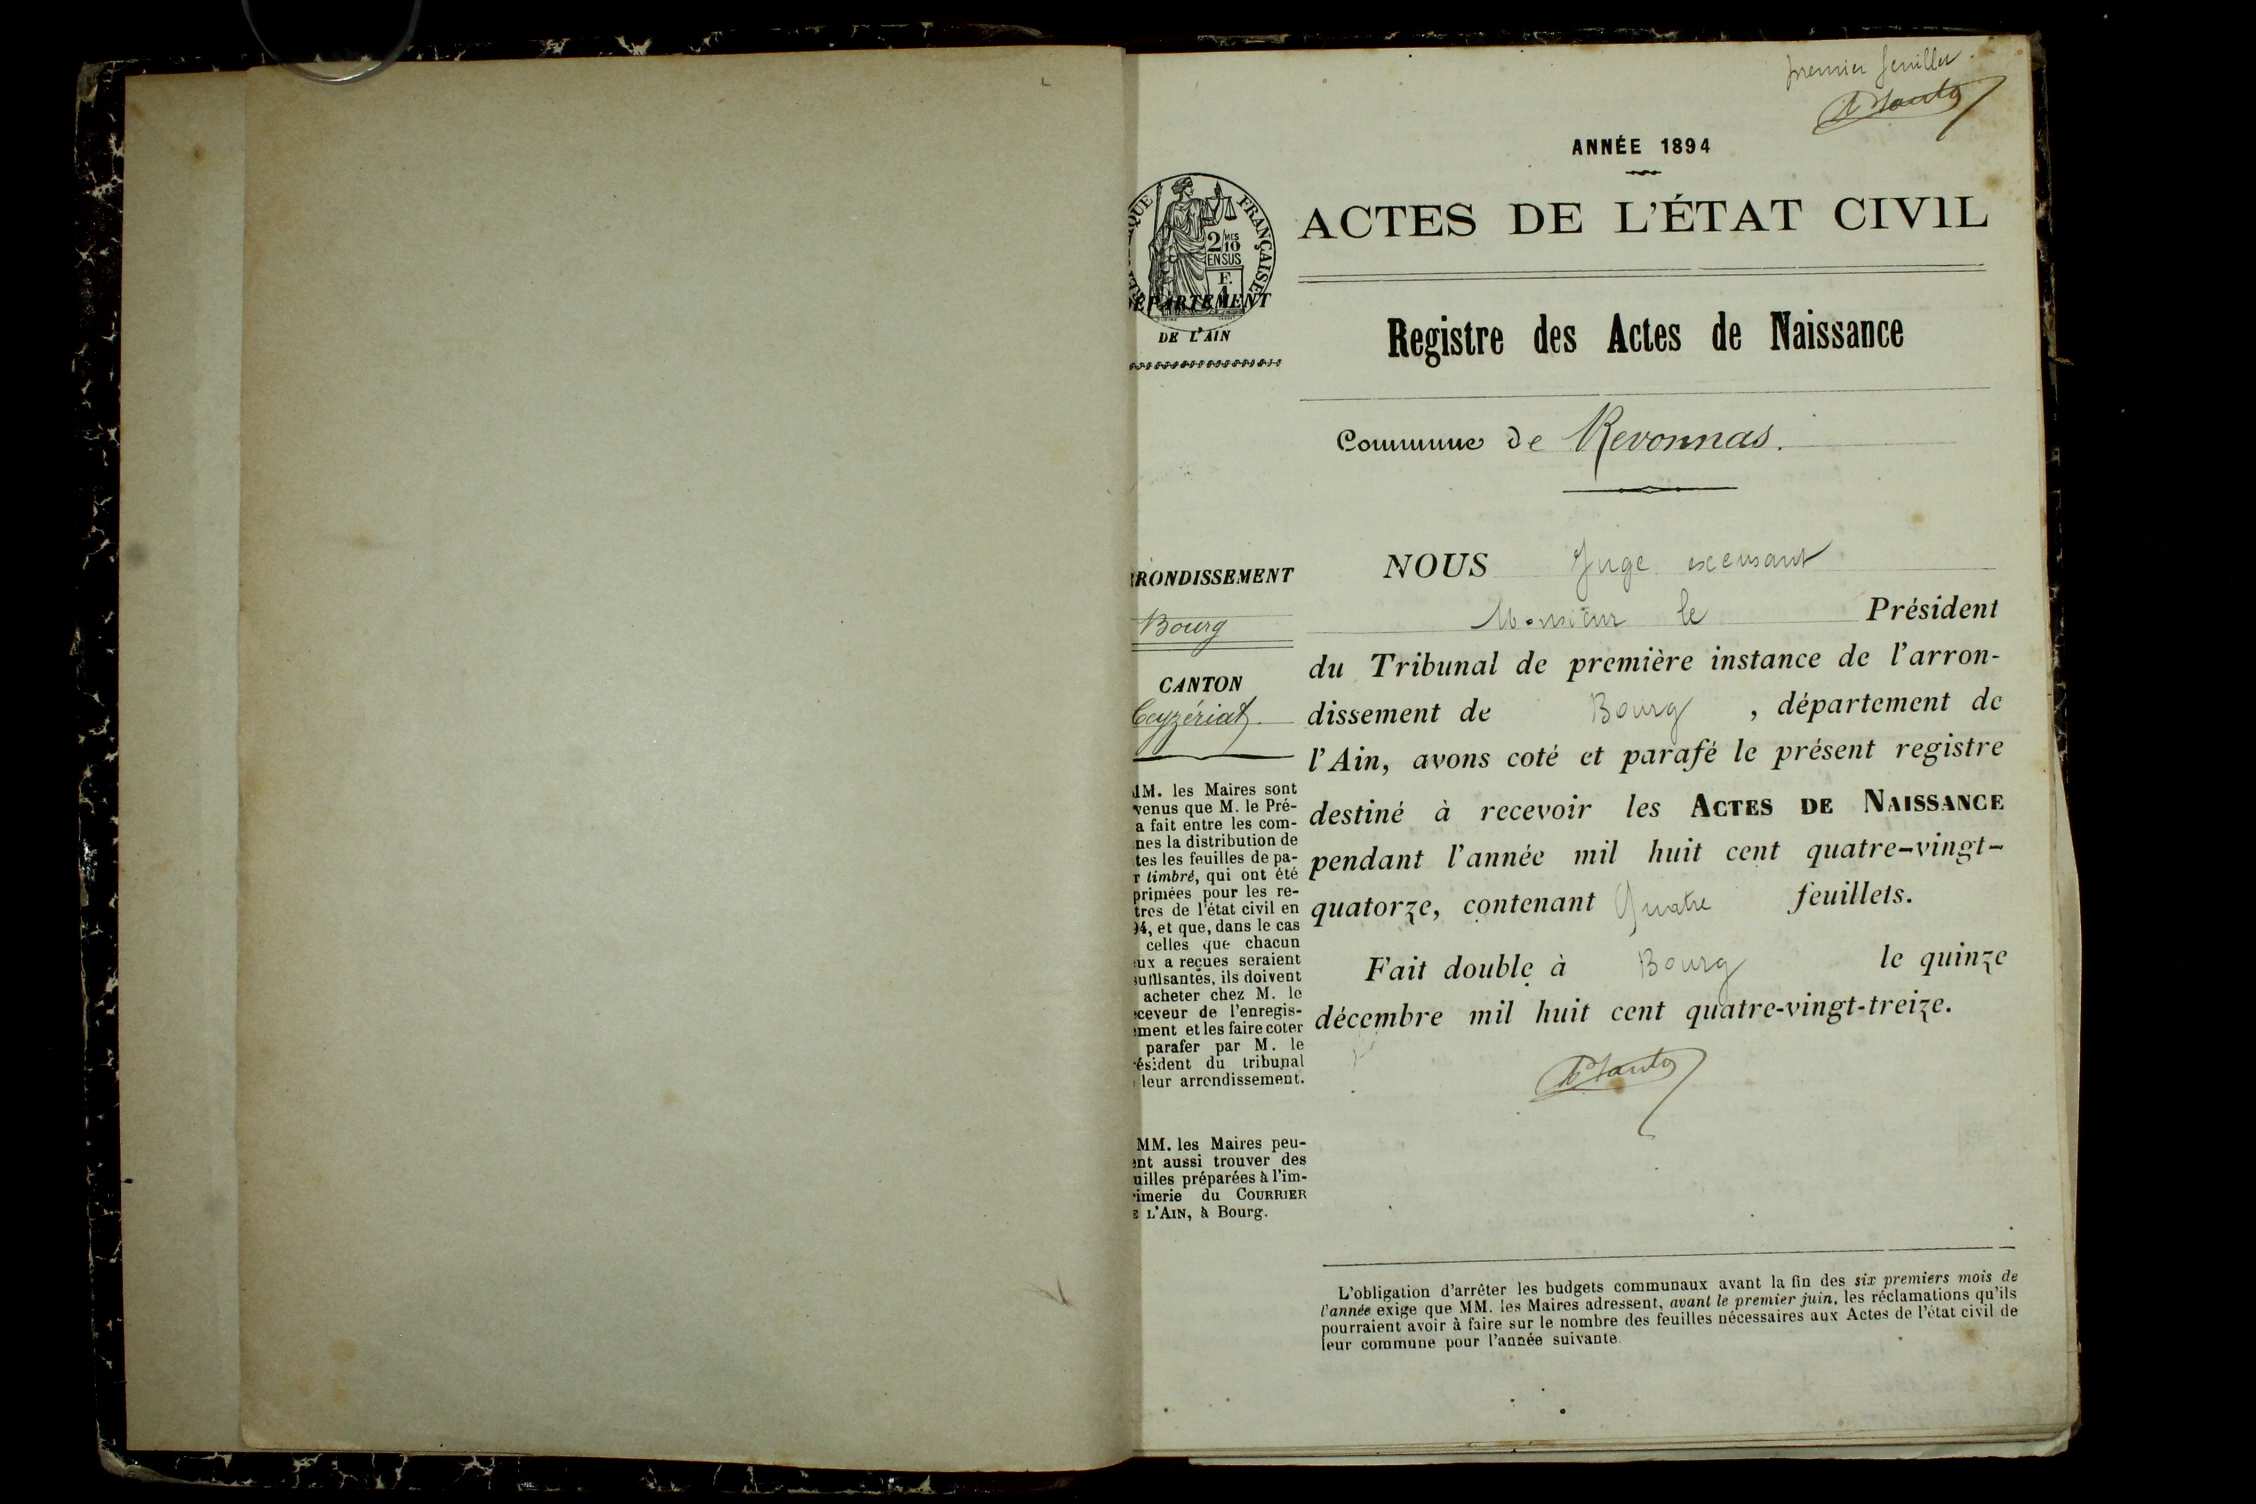 premier feuillet.
ANNÉE 1894
ACTES DE L'ÉTAT CIVIL
QUE FRANÇAISE
2/10 MES
EN SUS
F.
ÉPARTEMENT
DE L'AIN
Registre des Actes de Naissance
Commune de Revonnas.
RRONDISSEMENT
Bourg
CANTON
Ceyzériat.
MM. les Maires sont
venus que M. le Pré-
a fait entre les com-
nes la distribution de
tes les feuilles de pa-
r timbré, qui ont été
primées pour les re-
tres de l'état civil en
94, et que, dans le cas
celles que chacun
eux a reçues seraient
suffisantes, ils doivent
acheter chez M. le
eceveur de l'enregis-
ement et les faire coter
parafer par M. le
résident du tribunal
leur arrondissement.
MM. les Maires peu-
ent aussi trouver des
uilles préparées à l'im-
rimerie du COURRIER
E L'AIN, à Bourg.
NOUS Juge excusant
Monsieur le Président
du Tribunal de première instance de l'arron-
dissement de Bourg, département de
l'Ain, avons coté et parafé le présent registre
destiné à recevoir les ACTES DE NAISSANCE
pendant l'année mil huit cent quatre-vingt-
quatorze, contenant Quatre feuillets.
Fait double à Bourg le quinze
décembre mil huit cent quatre-vingt-treize.
L'obligation d'arrêter les budgets communaux avant la fin des six premiers mois de
l'année exige que MM. les Maires adressent, avant le premier juin, les réclamations qu'ils
pourraient avoir à faire sur le nombre des feuilles nécessaires aux Actes de l'état civil de
leur commune pour l'année suivante.